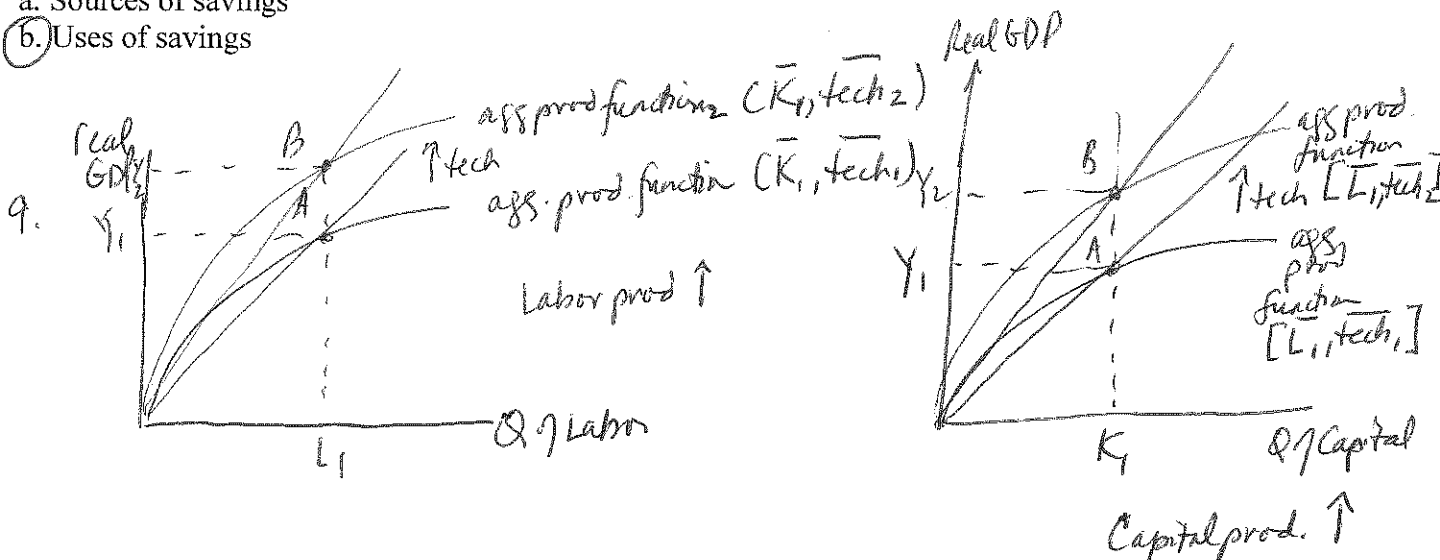 a. Sources of savings
b. Uses of savings
9.
real
GDP
Y2
Y1
B
A
agg prod function2 (K̄1, tech2)
↑tech
agg. prod function (K̄1, tech1)
Labor prod ↑
L1
Q of Labor
Real GDP
Y2
Y1
B
A
agg prod.
function
↑tech [L̄1, tech2]
agg
prod
function
[L̄1, tech1]
K1
Q of Capital
Capital prod. ↑